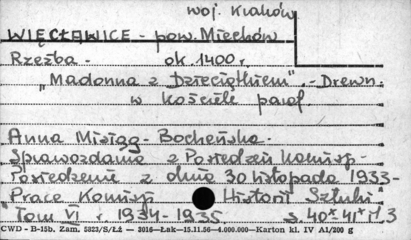 woj. Kraków
WIĘCŁAWICE - pow. Miechów
Rzeźba - ok. 1400 r.
"Madonna z Dzieciątkiem". - Drewn.
w kościele paraf.
Anna Misiąg - Bocheńska -
Sprawozdania z Posiedzeń Komisji -
Posiedzenie z dnia 30 listopada 1933 -
"Prace Komisji Historii Sztuki"
Tom VI r. 1934-1935. s. 40* 41* il. 3
CWD - B-15b. Zam. 5823/S/Łż — 3016—Łak—15.11.56—4.000.000—Karton kl. IV A1/200 g